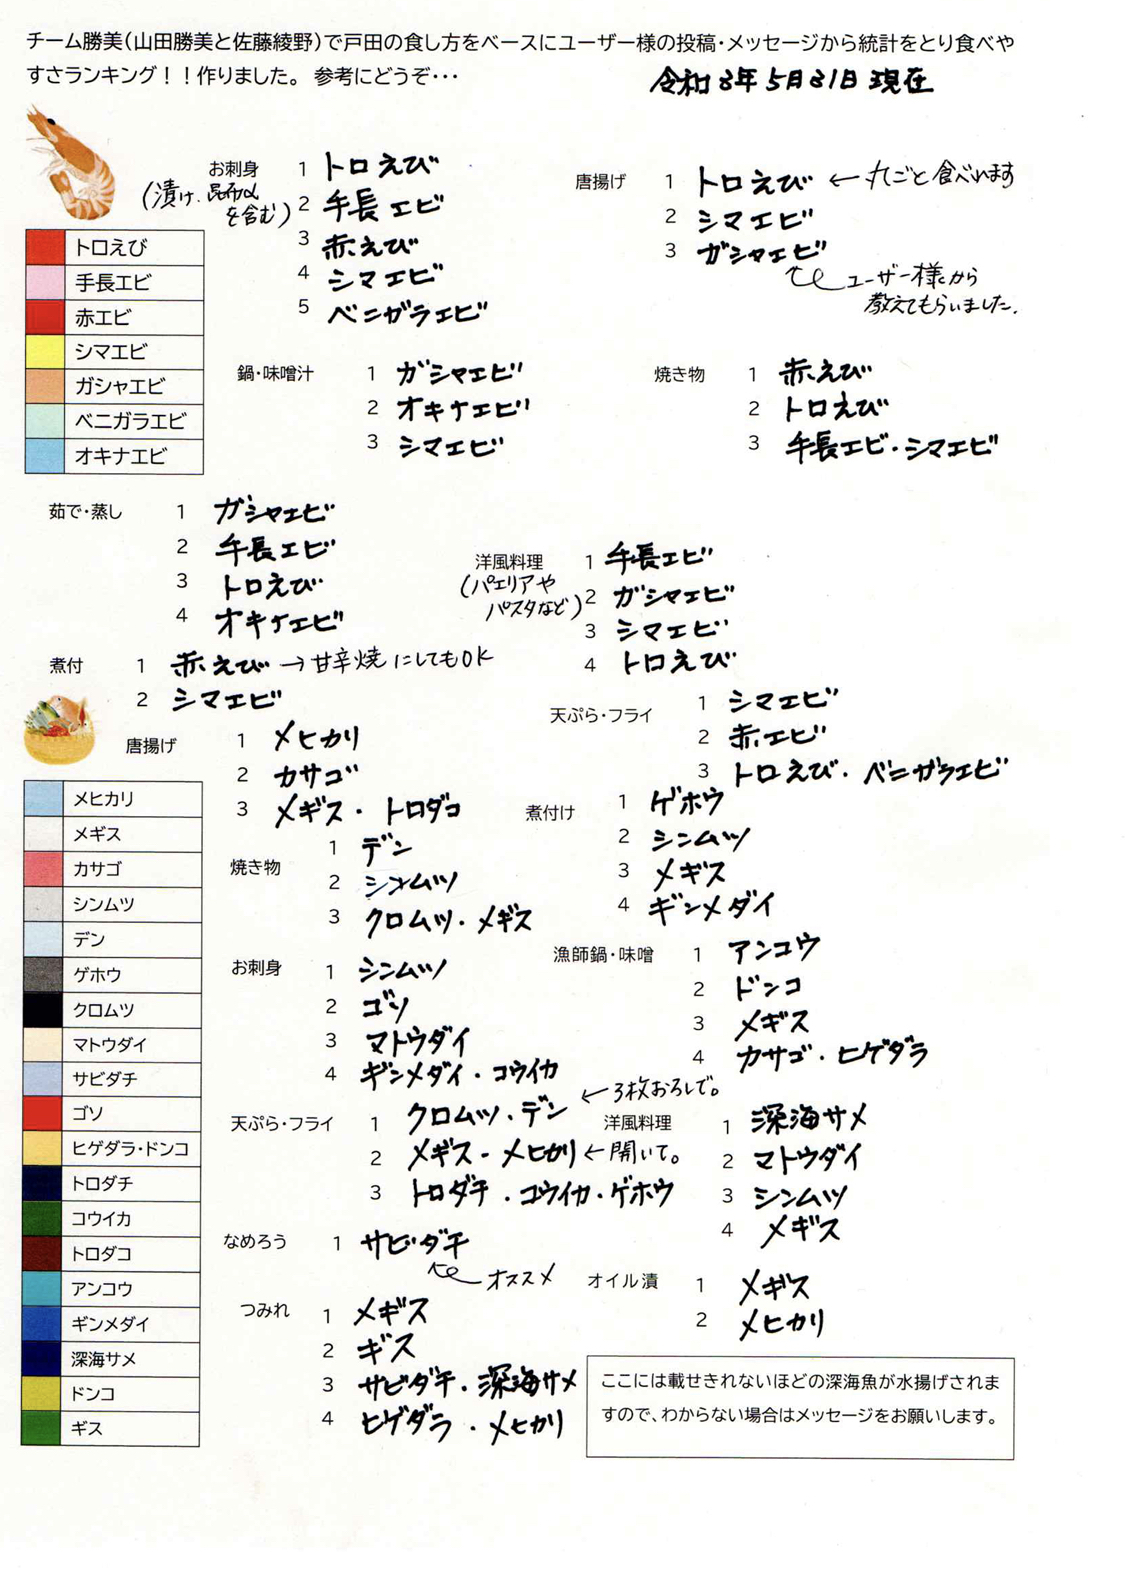 チーム勝美(山田勝美と佐藤綾野)で戸田の食し方をベースにユーザー様の投稿・メッセージから統計をとり食べや
すさランキング！！作りました。 参考にどうぞ・・・
令和3年5月31日 現在
お刺身
(漬け、昆布〆
を含む)
1 トロえび
2 手長エビ
3 赤えび
4 シマエビ
5 ベニガラエビ
唐揚げ
1 トロえび ← 丸ごと食べれます
2 シマエビ
3 ガシャエビ
ユーザー様から
教えてもらいました.
トロえび
手長エビ
赤エビ
シマエビ
ガシャエビ
ベニガラエビ
オキナエビ
鍋・味噌汁
1 ガシャエビ
2 オキナエビ
3 シマエビ
焼き物
1 赤えび
2 トロえび
3 手長エビ・シマエビ
茹で・蒸し
1 ガシャエビ
2 手長エビ
3 トロえび
4 オキナエビ
洋風料理
(パエリアや
パスタなど)
1 手長エビ
2 ガシャエビ
3 シマエビ
4 トロえび
煮付
1 赤えび → 甘辛焼にしてもOK
2 シマエビ
天ぷら・フライ
1 シマエビ
2 赤エビ
3 トロえび・ベニガラエビ
唐揚げ
1 メヒカリ
2 カサゴ
3 メギス・トロダコ
煮付け
1 ゲホウ
2 シンムツ
3 メギス
4 ギンメダイ
メヒカリ
メギス
カサゴ
シンムツ
デン
ゲホウ
クロムツ
マトウダイ
サビダチ
ゴソ
ヒゲダラ・ドンコ
トロダチ
コウイカ
トロダコ
アンコウ
ギンメダイ
深海サメ
ドンコ
ギス
焼き物
1 デン
2 シンムツ
3 クロムツ・メギス
お刺身
1 シンムツ
2 ゴソ
3 マトウダイ
4 ギンメダイ・コウイカ
漁師鍋・味噌
1 アンコウ
2 ドンコ
3 メギス
4 カサゴ・ヒゲダラ
天ぷら・フライ
1 クロムツ・デン ← 3枚おろしで。
2 メギス・メヒカリ ← 開いて。
3 トロダチ・コウイカ・ゲホウ
洋風料理
1 深海サメ
2 マトウダイ
3 シンムツ
4 メギス
なめろう
1 サビダチ
オススメ
オイル漬
1 メギス
2 メヒカリ
つみれ
1 メギス
2 ギス
3 サビダチ・深海サメ
4 ヒゲダラ・メヒカリ
ここには載せきれないほどの深海魚が水揚げされま
すので、わからない場合はメッセージをお願いします。